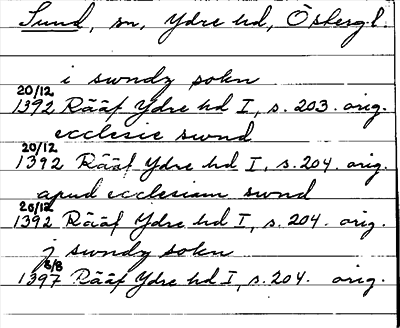 Sund, sn, Ydre hd, Östergl.
i swndz sokn
20/12
1392 Rääf Ydre hd I, s. 203. orig.
ecclesie swnd
20/12
1392 Rääf Ydre hd I, s. 204. orig.
apud ecclesiam swnd
20/12
1392 Rääf Ydre hd I, s. 204. orig.
j swndz sokn
8/8
1397 Rääf Ydre hd I, s. 204. orig.